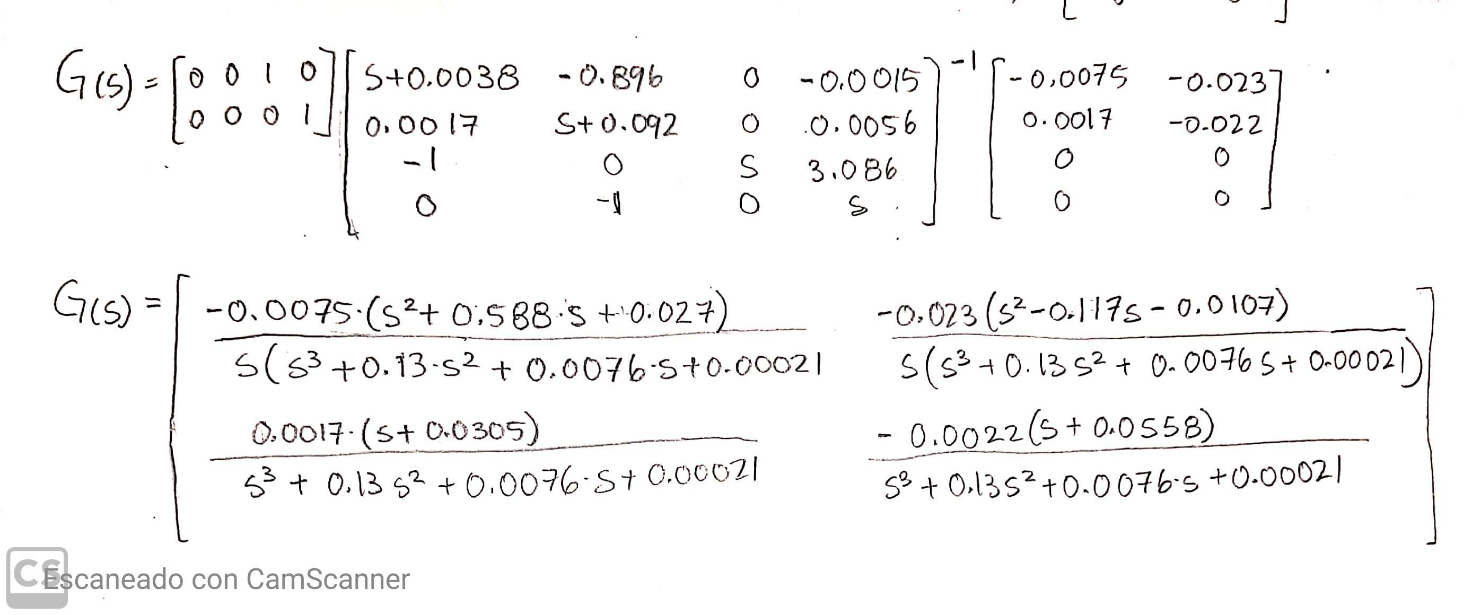 G(s) = [0 0 1 0; 0 0 0 1] [s+0.0038 -0.896 0 -0.0015; 0.0017 s+0.092 0 0.0056; -1 0 s 3.086; 0 -1 0 s]^-1 [-0.0075 -0.023; 0.0017 -0.022; 0 0; 0 0]
G(s) = [
-0.0075·(s²+0.588·s+0.027) / s(s³+0.13·s²+0.0076·s+0.00021
-0.023(s²-0.117s-0.0107) / s(s³+0.13s²+0.0076s+0.00021)
0.0017·(s+0.0305) / s³+0.13s²+0.0076·s+0.00021
-0.0022(s+0.0558) / s³+0.13s²+0.0076·s+0.00021
]
CS Escaneado con CamScanner